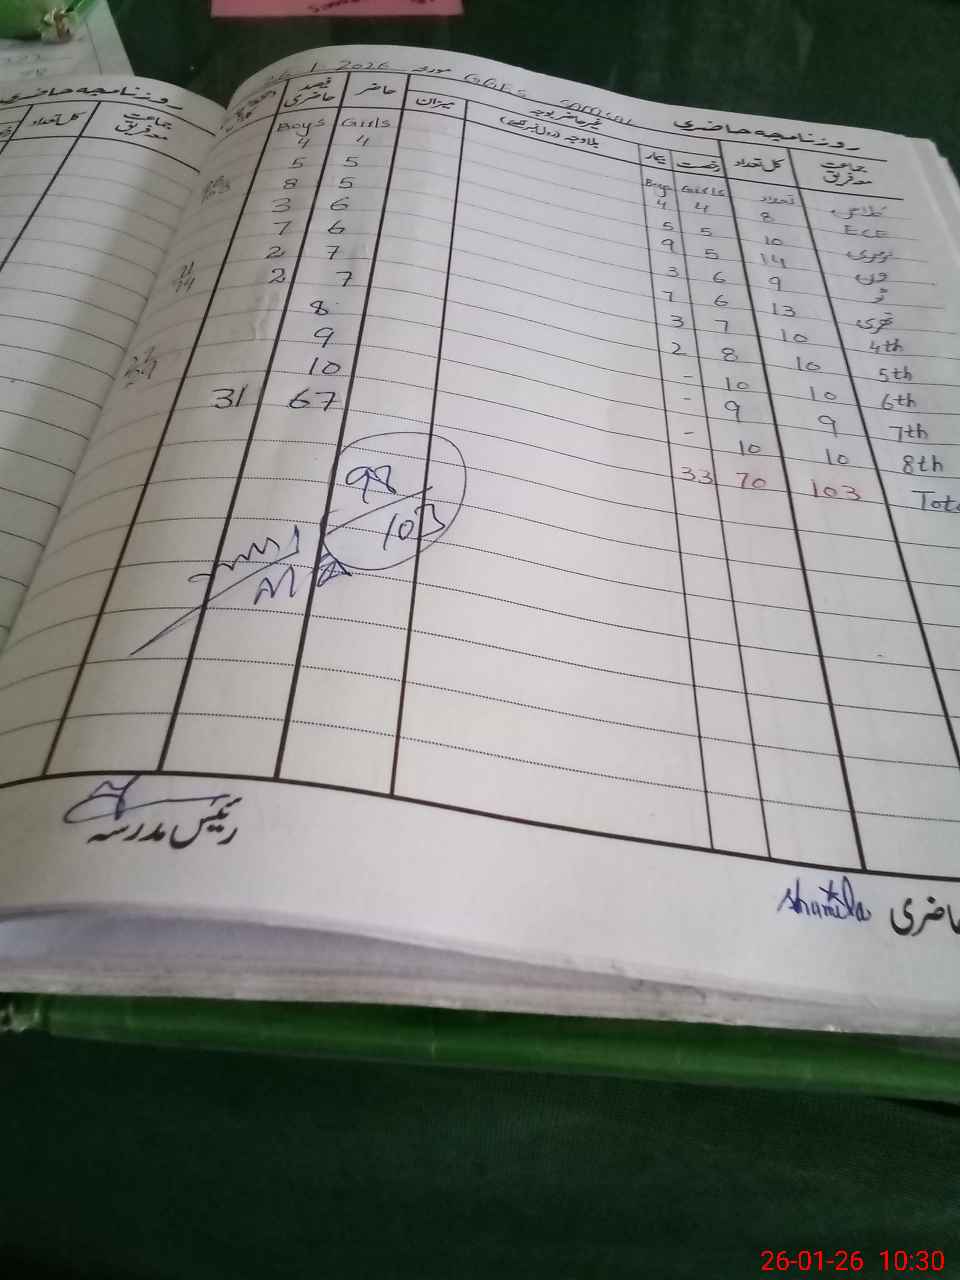 روزنامچہ حاضری GGES مورخہ 26.1.2026
جماعت معہ فریق کل تعداد رخصت بیمار غیر حاضر بوجہ بلاوجہ میزان حاضر فیصد حاضری
تعداد Girls Boys Girls Boys
8 4 4 4 4
ECE 10 5 5 5 5
نرسری 14 5 9 5 8
ون 9 6 3 6 3
ٹو 13 6 7 6 7
تھری 10 7 3 7 2
4th 10 8 2 7 2
5th 10 10 - 8
6th 9 9 - 9
7th 10 10 - 10
8th
Total 103 70 33 67 31
98/103
رئیس مدرسہ
Shumila
حاضری
روزنامچہ حاضری
جماعت معہ فریق
کل تعداد
26-01-26 10:30